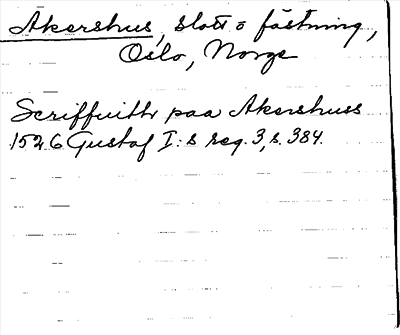 Akershus, slott o fästning,
Oslo, Norge
Scriffuith paa Akershuss
1526 Gustaf I:s reg. 3, s. 384.